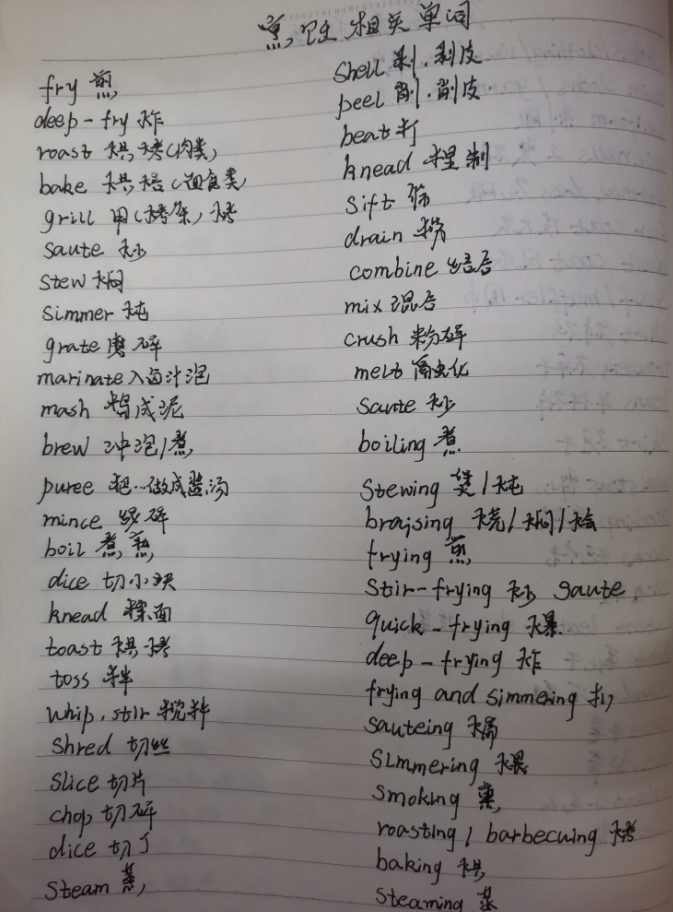 烹饪相关单词
fry 煎
deep-fry 炸
roast 烘烤(肉类)
bake 烘焙(面食类)
grill 用(烤架)烤
saute 炒
stew 焖
simmer 炖
grate 磨碎
marinate 入卤汁泡
mash 捣成泥
brew 冲泡/煮
puree 把…做成酱汤
mince 绞碎
boil 煮熟
dice 切小块
knead 揉面
toast 烘烤
toss 拌
whip, stir 搅拌
shred 切丝
slice 切片
chop 切碎
dice 切丁
steam 蒸
shell 剥.剥皮
peel 削.削皮
beat 打
knead 捏制
sift 筛
drain
combine 结合
mix 混合
crush 粉碎
melt 融化
saute 炒
boiling 煮
stewing 煲/炖
braising 烧/焖/烩
frying 煎
stir-frying 炒 saute
quick-frying 爆
deep-frying 炸
frying and simmering 扒
sauteing 煸
simmering 煨
smoking 熏
roasting / barbecuing 烤
baking 烘
steaming 蒸